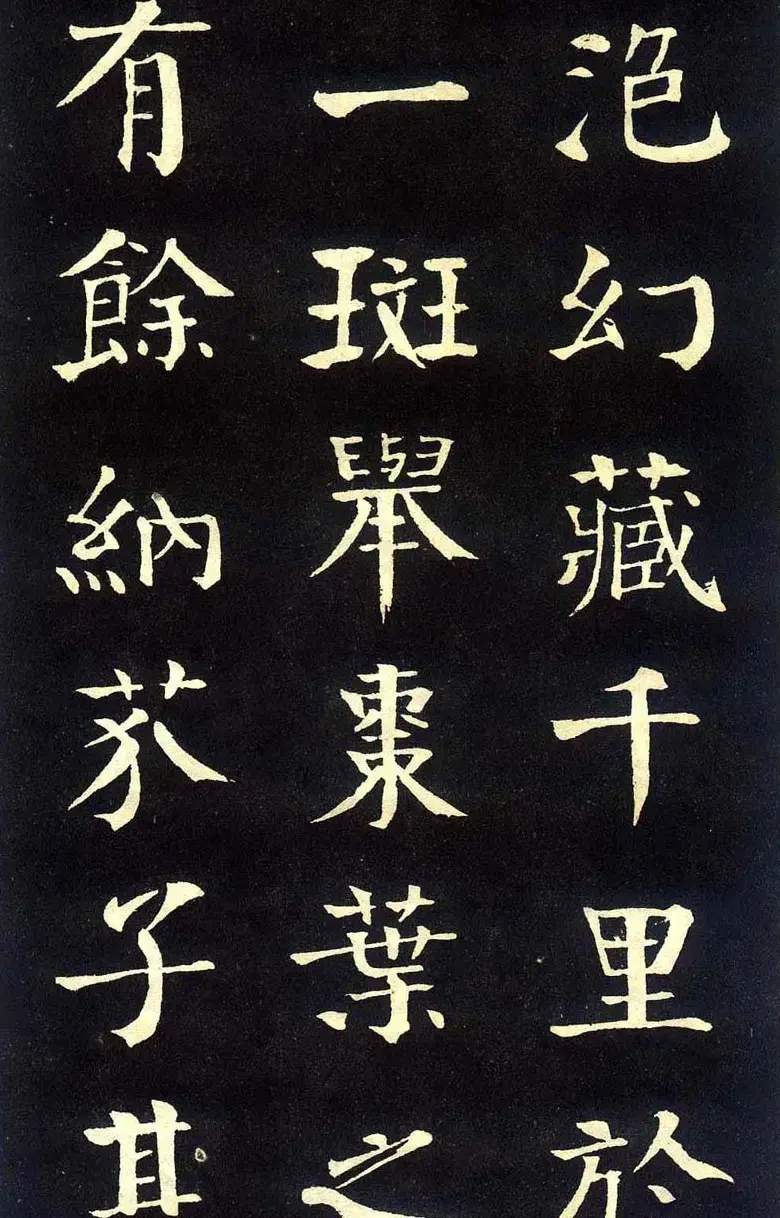 泡幻藏千里於
一斑舉棗葉之
有餘納芥子其